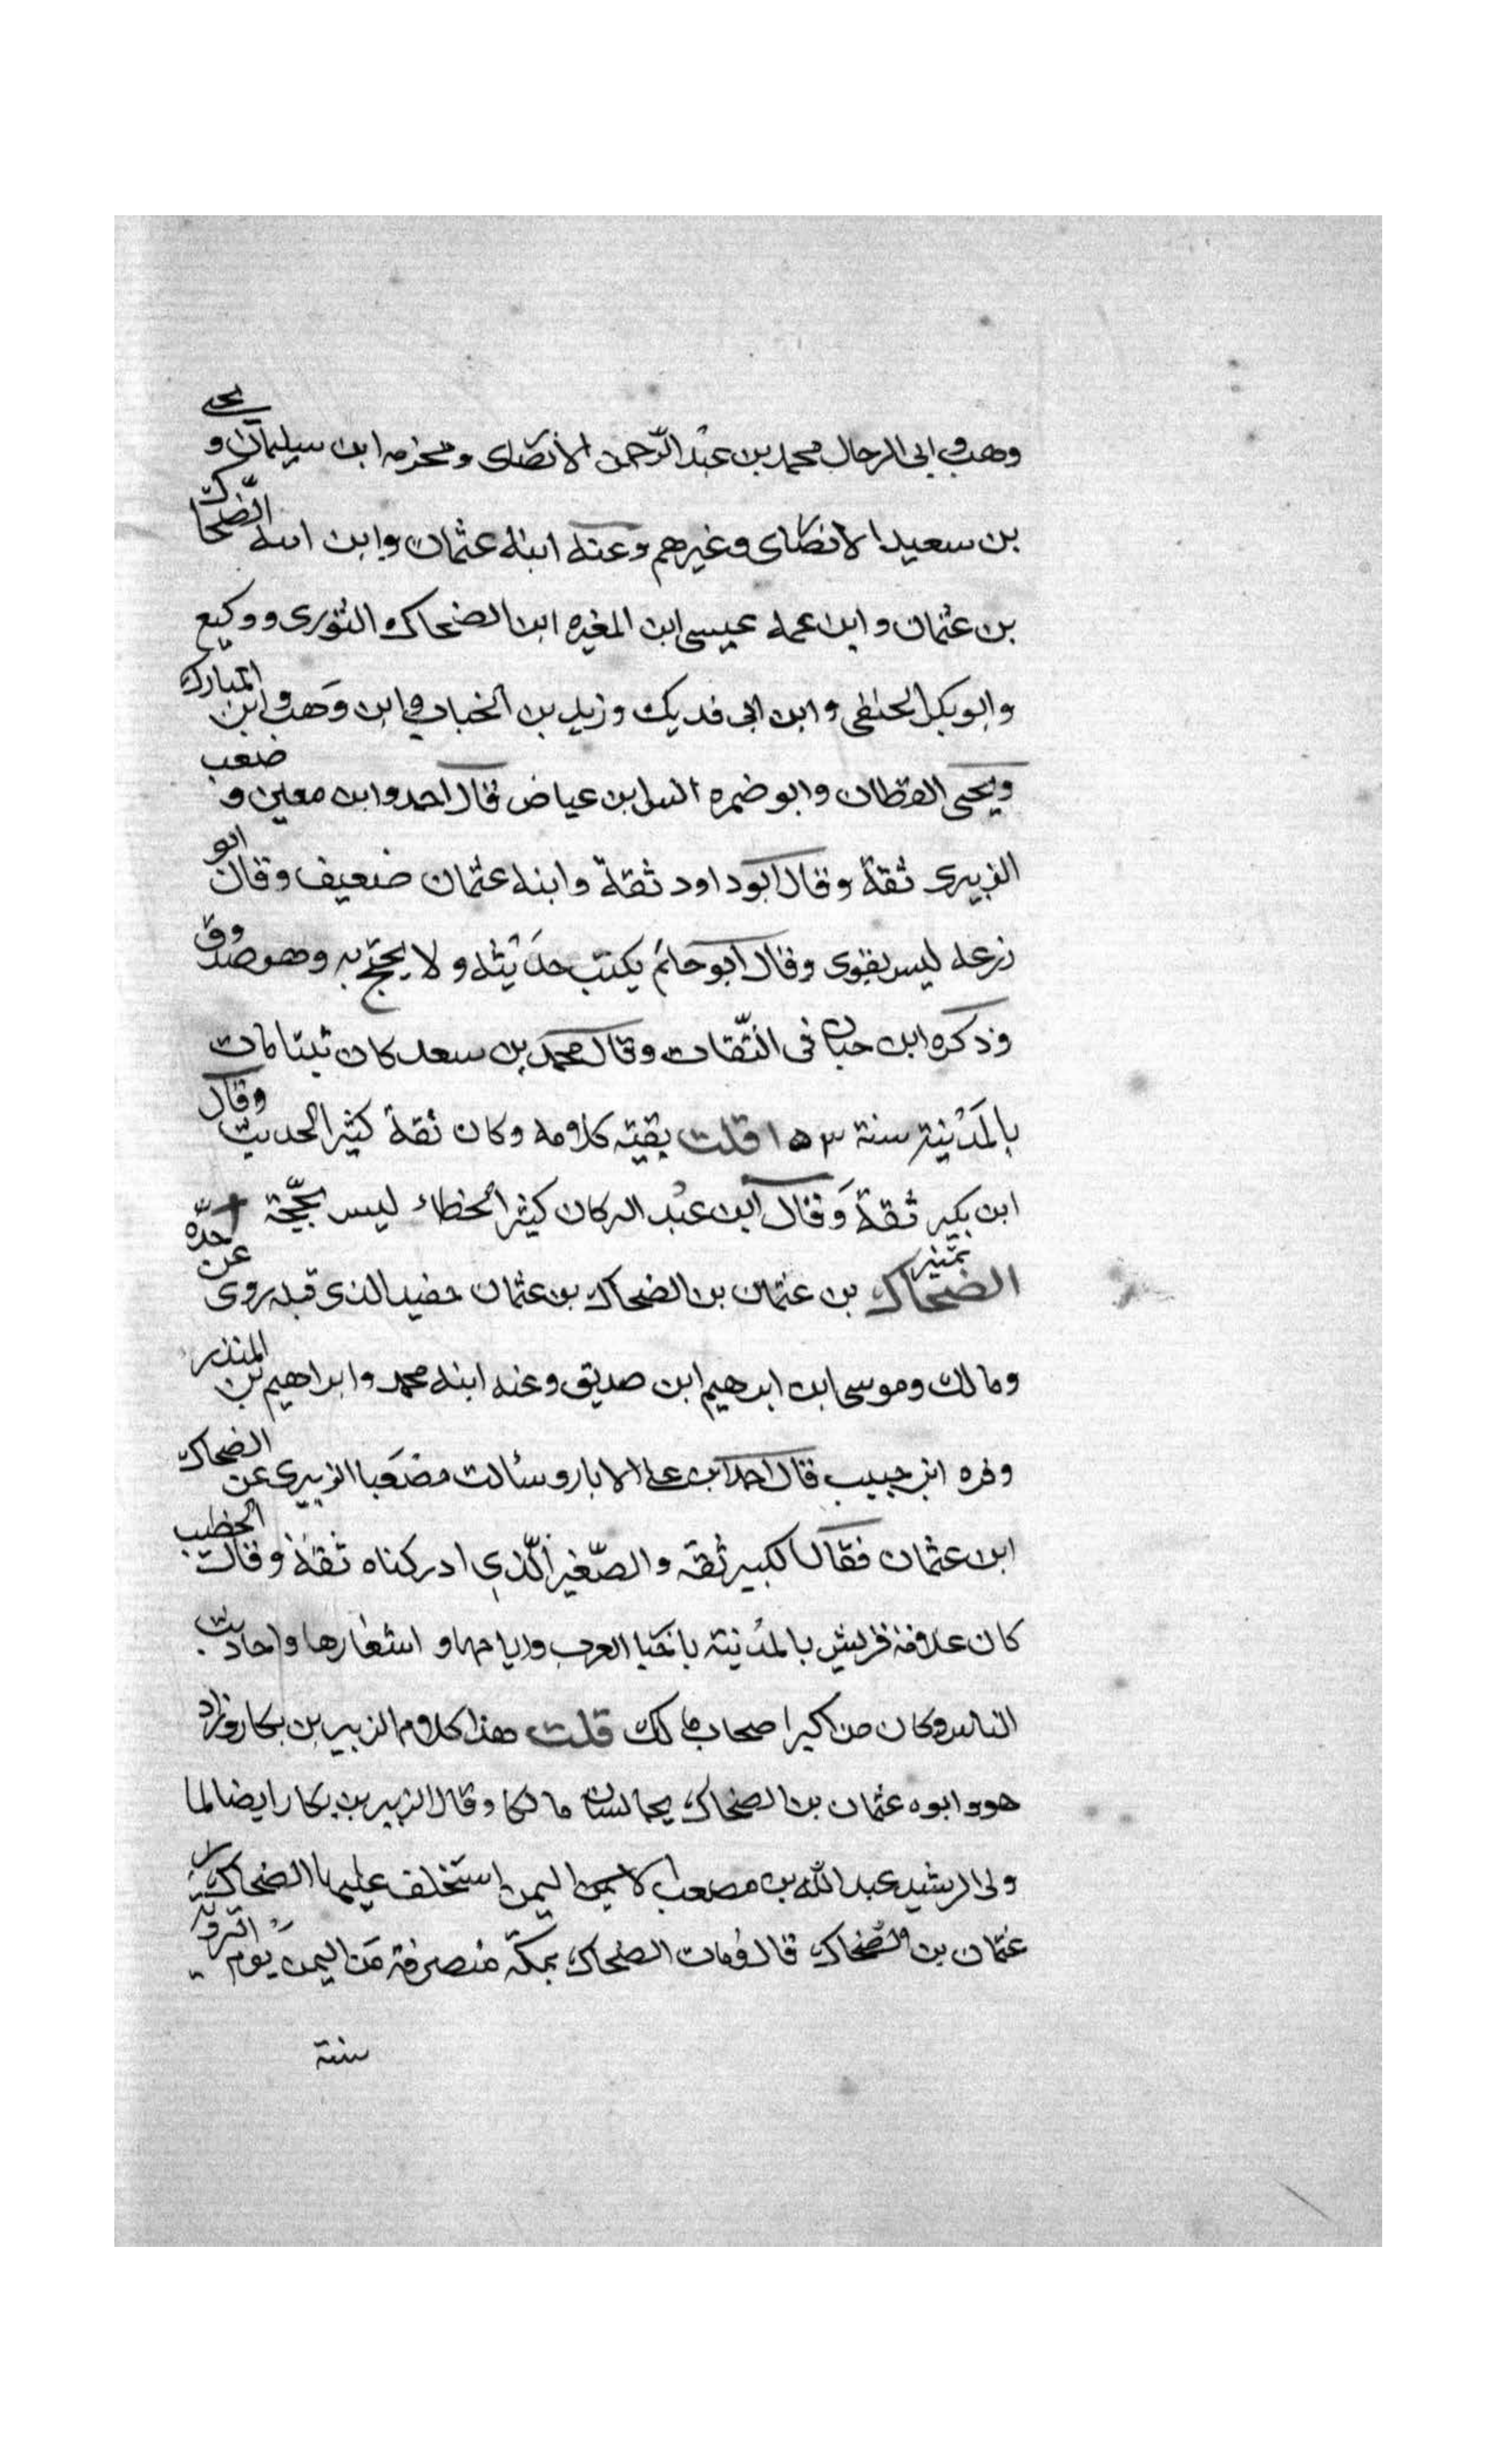 وهب وابى الرجال محمد بن عبد الرّحمن الانصاى ومخرمه ابن سيليمان و يحيى
بن سعيد الانصاى وغيرهم وعنه ابنه عثمان وابن ابنه الضّحاك
بن عثمان وابن عمه عيسى ابن المغيره ابن الضحاك والثورى ووكيع
وابو بكر الحنفى وابن ابى فديك وزيد بن الخباب وابن وهب وابن المبارك
ويحيى القطان وابو ضمره انس ابن عياض قال احمد وابن معين و صعب
الزبيرى ثقة وقال ابو داود ثقة وابنه عثمان ضعيف وقال ابو
زرعه ليس بقوى وقال ابو حاتم يكتب حديثه ولا يحتج به وهو صدوق
وذكره ابن حبان فى الثّقات وقال محمد بن سعد كان ثبتا مات
بالمدينة سنة ١٥٣ قلت بقيته كلامه وكان ثقة كثير الحديث وقال
ابن بكير ثقة وقال ابن عبد البر كان كثير الخطاء ليس بحجّة
الضحاك بن عثمان بن الضحاك بن عثمان حفيد الذى قبله روى عن جدّه
تمييز
ومالك وموسى ابن ابرهيم ابن صديق وعنه ابنه محمد وابراهيم بن المنذر
وفره ابن حبيب قال احمد ابن على الابار وسألت مصعبا الزبيرى عن الضحاك
ابن عثمان فقال الكبير ثقة والصّغير الّذى ادركناه ثقة وقال الخطيب
كان علامة قريش بالمدينة باخبا العرب وايامها و اشعارها واحاديث
الناس وكان من اكبر اصحاب مالك قلت هذا كلام الزبير بن بكار وزاد
هو وابوه عثمان بن الضحاك يجالسان مالكا وقال الزبير بن بكار ايضا لما
ولى الرشيد عبد الله بن مصعب اليمن استخلف عليها الضحاك بن
عثمان بن الضحاك قال ومات الضحاك بمكّة منصرفة من اليمن يوم التروية
سنة